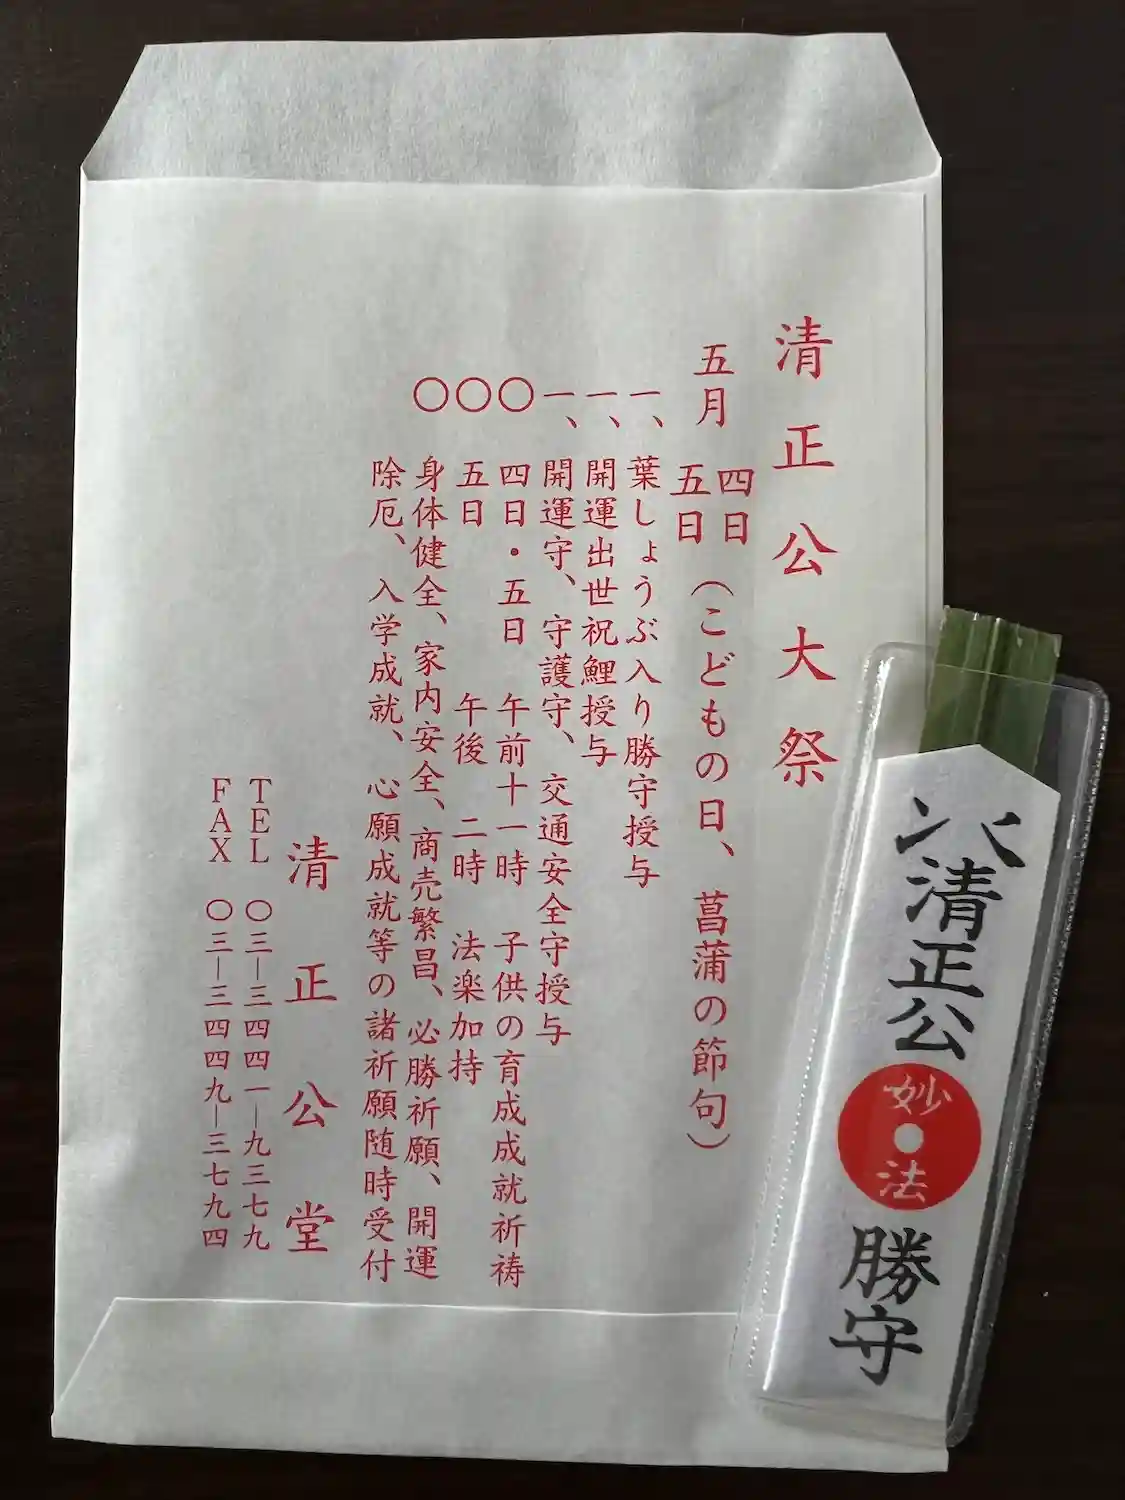 清正公大祭
五月 四日
五日 (こどもの日、菖蒲の節句)
一、葉しょうぶ入り勝守授与
一、開運出世祝鯉授与
一、開運守、守護守、交通安全守授与
〇 四日・五日 午前十一時 子供の育成成就祈祷
〇 五日 午後 二時 法楽加持
〇 身体健全、家内安全、商売繁昌、必勝祈願、開運
除厄、入学成就、心願成就等の諸祈願随時受付
清正公堂
TEL 〇三―三四四一―九三七九
FAX 〇三―三四四九―三七九四
清正公
妙法
勝守